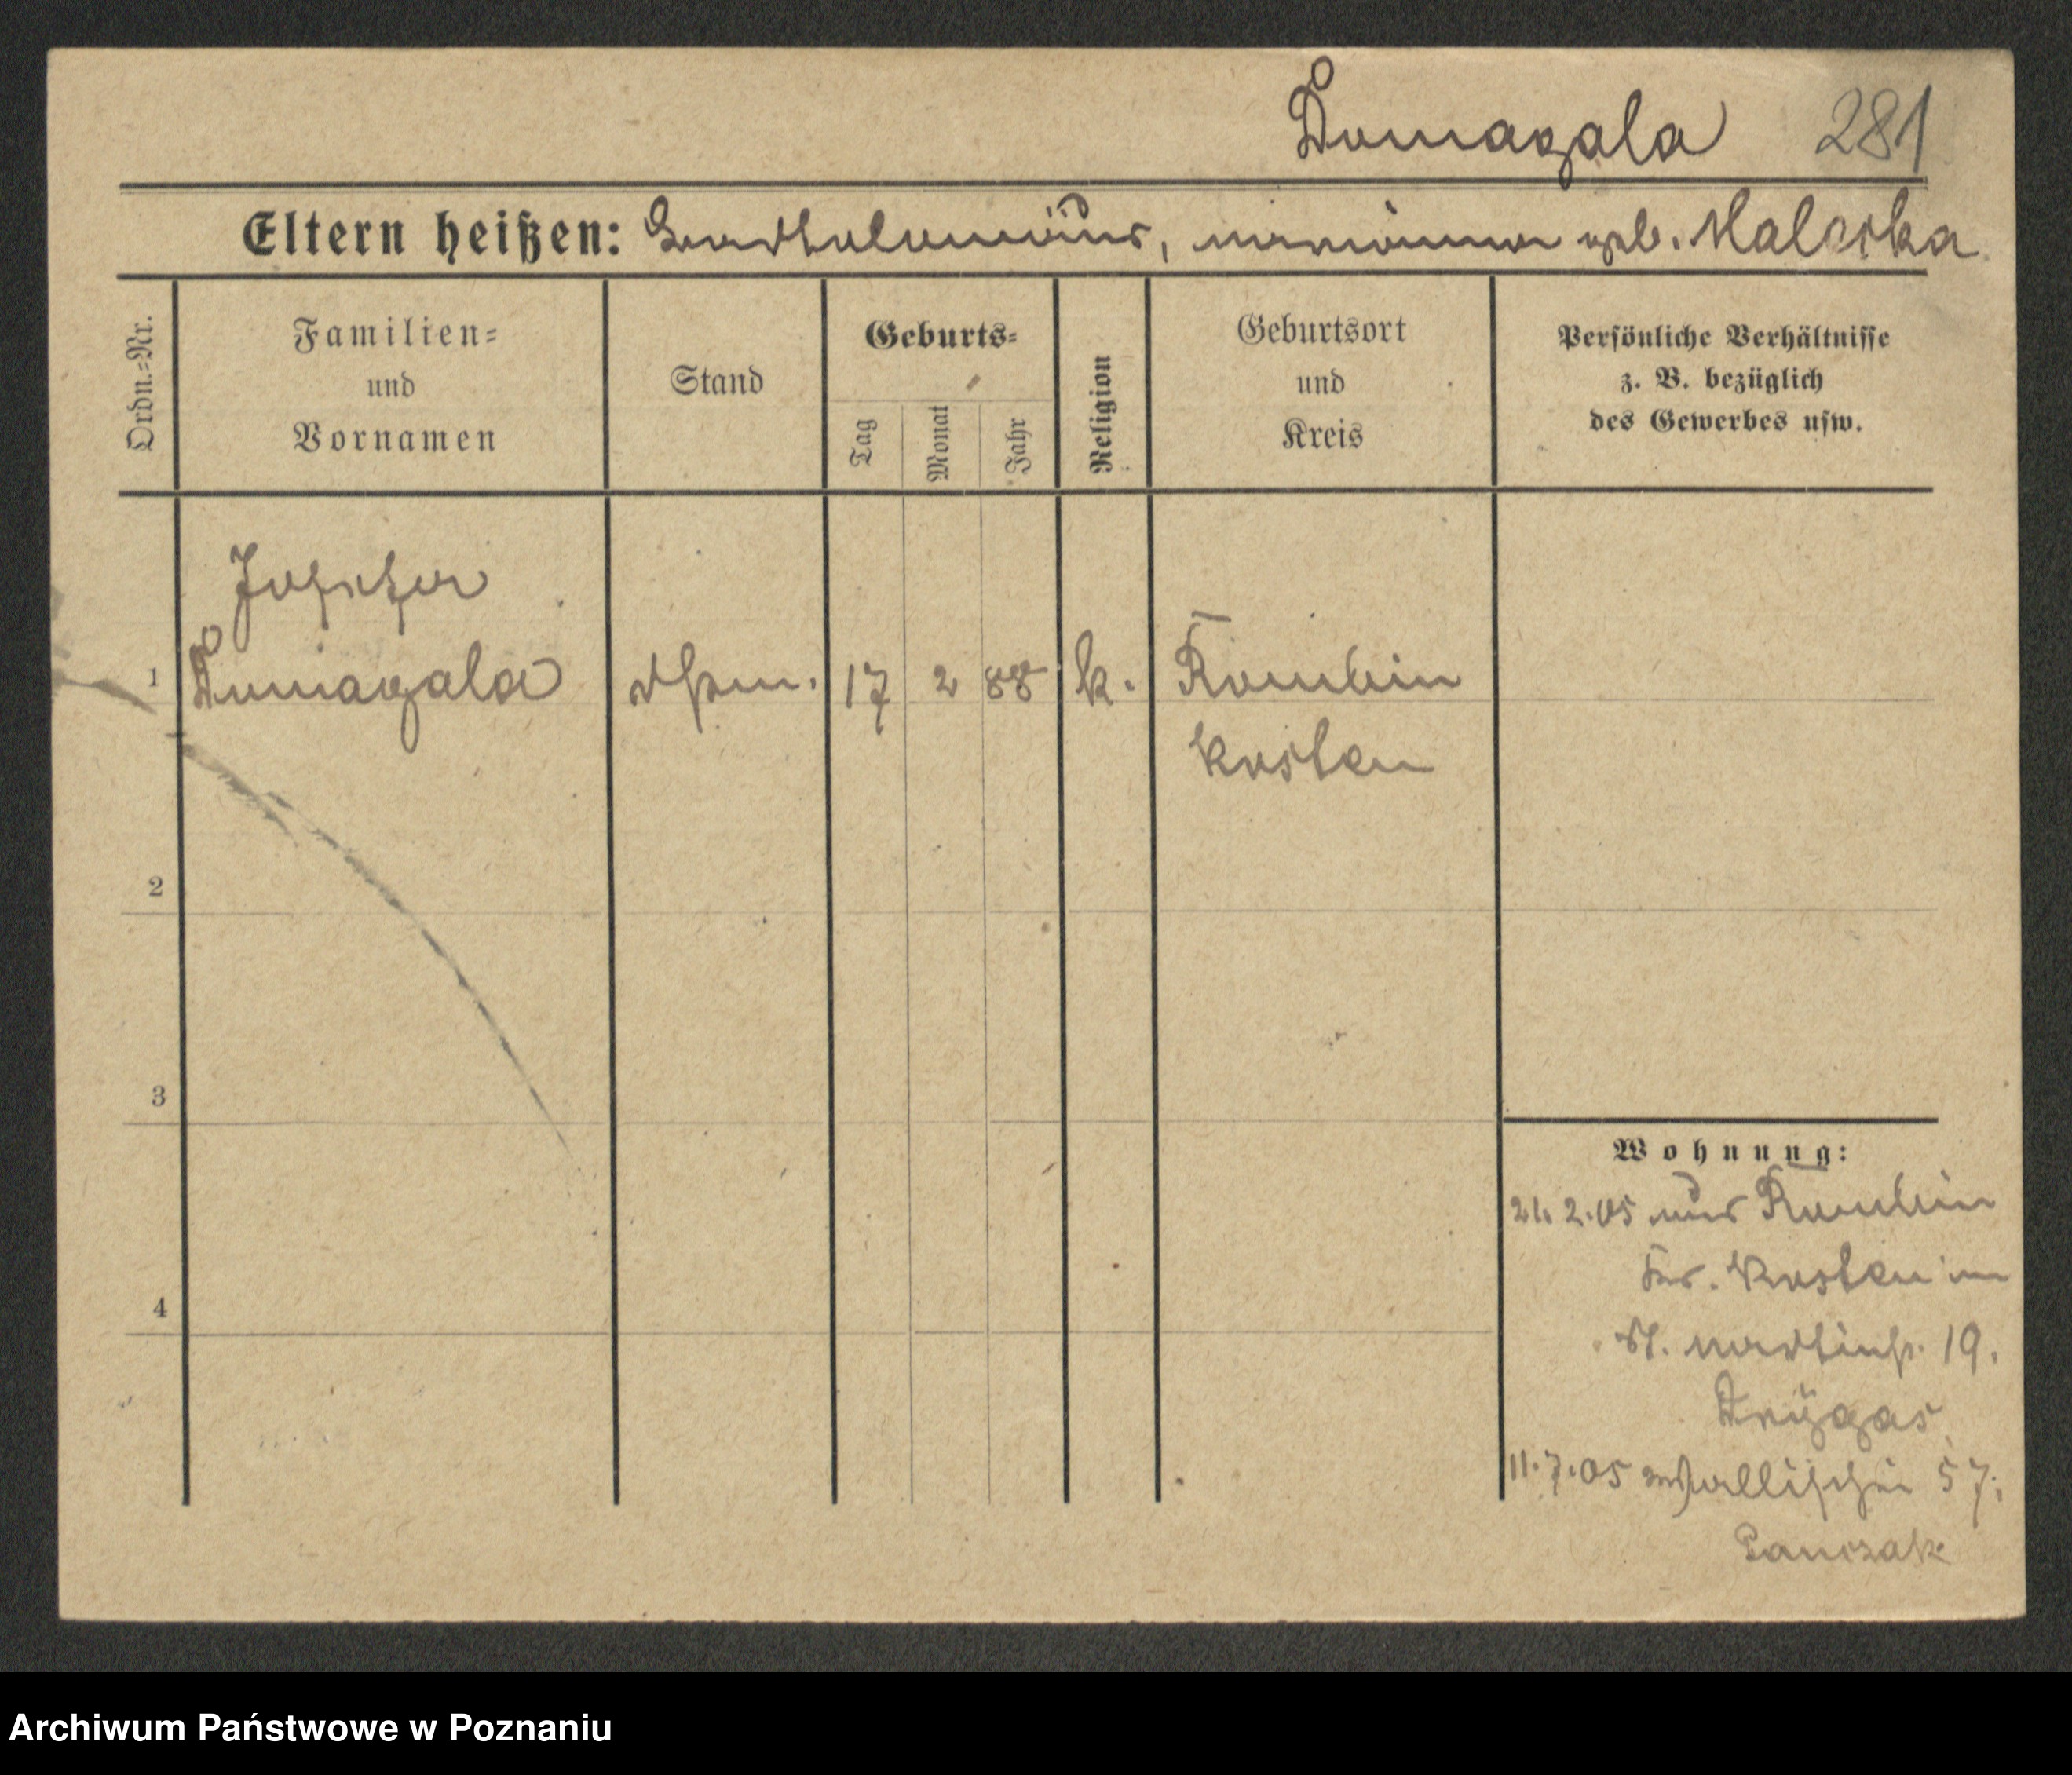 Domagala 281
Eltern heißen: Bartholomäus, Marianna geb. Malecka
Ordn.-Nr.
Familien-
und
Vornamen
Stand
Geburts-
Tag
Monat
Jahr
Religion
Geburtsort
und
Kreis
Persönliche Verhältnisse
z. B. bezüglich
des Gewerbes usw.
Josefa
1 Domagala 17 2 88 k. Rombin
Kosten
2
3
4
Wohnung:
21. 2. 05 aus Rombin
Kr. Kosten in
St. Martinstr. 19.
11. 7. 05 Wallischei 57;
Panczak
Archiwum Państwowe w Poznaniu